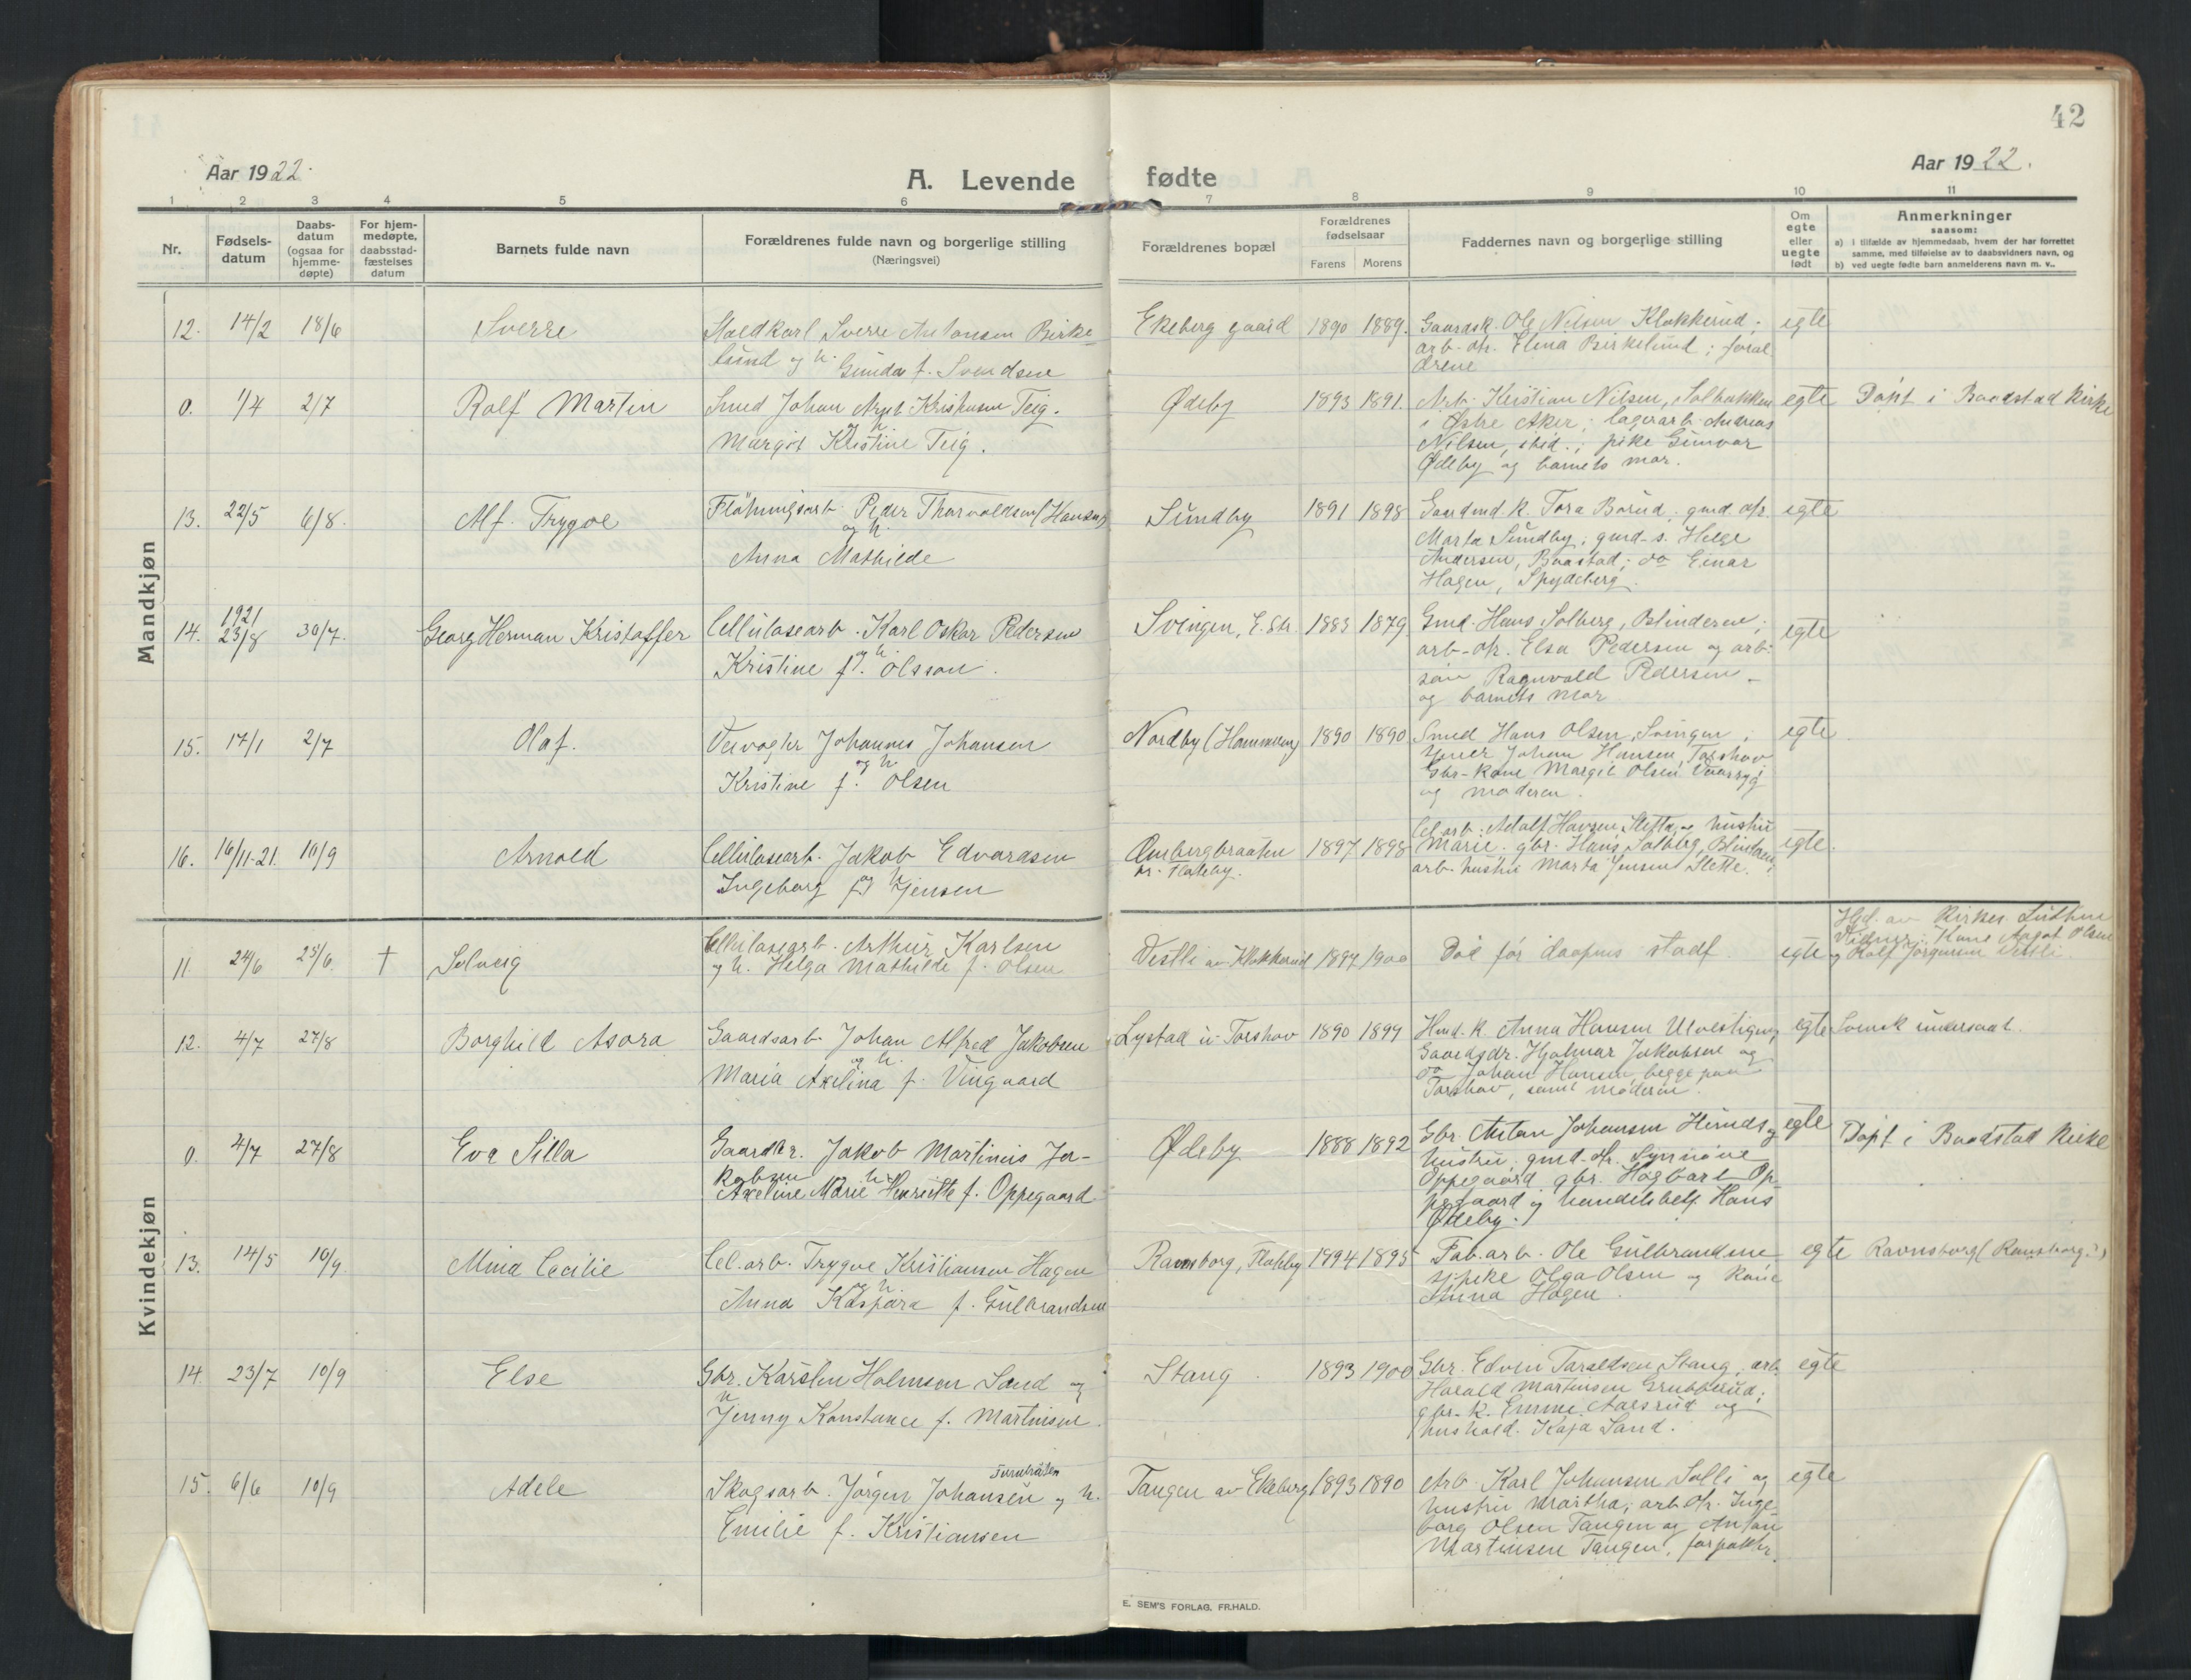 42
Aar 1922.
A. Levende fødte
Aar 1922.
1 2 3 4 5 6 7 8 9 10 11
Nr.
Fødsels-
datum
Daabs-
datum
(ogsaa for
hjemme-
døpte)
For hjem-
medøpte,
daabsstad-
fæstelses
datum
Barnets fulde navn
Forældrenes fulde navn og borgerlige stilling
(Næringsvei)
Forældrenes bopæl
Forældrenes
fødselsaar
Farens Morens
Faddernes navn og borgerlige stilling
Om
egte
eller
uegte
født
Anmerkninger
saasom:
a) i tilfælde av hjemmedaab, hvem der har forrettet
samme, med tilføielse av to daabsvidners navn, og
b) ved uegte fødte barn anmelderens navn m. v..
Mandkjøn
12. 14/2 18/6 Sverre
Staldkarl Sverre Antonsen Birke-
lund og h. Gunda f. Svendsen
Ekeberg gaard 1890 1889.
Gaardsk. Ole Nilsen Klokkerud;
arb.-dtr. Elena Birkelund; foræl-
drene
egte
0. 1/4 2/7 Rolf Martin
Smed Johan Kristiansen Teig.
og h.
Margit Kristine Teig.
Ødeby 1893 1891.
Arb. Kristian Nilsen, Solbakken
i Østre Aker; lagerarb. Andreas
Nilsen, ; pike Gunvor
Ødeby og barnets mor.
egte Døpt i Baastad Kirke
13. 22/5 6/8. Alf Trygve
Fløtningsarb. Peder Thorvaldsen (Hansen)
og h.
Anna Mathilde
Sundby 1891 1898
Gaardmd. k. Tora Borud; gmd. dtr.
Marta Sundby; gmd. s. Helge
Andersen, Baastad; do Einar
Hagen, Spydeberg.
egte
14. 1921
23/8 30/7. Georg Herman Kristoffer
Cellulosearb. Karl Oskar Pedersen
og h.
Kristine f. Olsson.
Svingen, E. Str. 1883 1879
Gmd. Hans Solberg, Blinderen;
arb.-dtr. Elsa Pedersen og arb.
søn Ragnvald Pedersen
og barnets mor
egte
15. 17/1 2/7 Olaf.
Veivogter Johannes Johansen
og h.
Kristine f. Olsen
Nordby (Hammeren) 1890 1890
Smed Hans Olsen, Svingen;
Johan Hansen, Torshov
Gbr-kone Margit Olsen
og moderen.
egte
16. 16/11-21. 10/9 Arnold
Cellulosearb. Jakob Edvardsen
og h.
Ingeborg f. Jensen
Ombergbraaten
nr. Flateby. 1897 1898
Cel. arb. Adolf Hansen Sletta og hustru
Marie. gbr. Hans Solberg, Blinderen;
arb. hustru Marta Jensen Slette.
egte.
Kvindekjøn
11. 24/6 25/6. † Solveig
Cellulosearb. Arthur Karlsen
og h. Helga Mathilde f. Olsen
Vestli av Klokkerud 1897 1900
Død før daapens stadf.
egte
Hjd. av Kirkes.
Vidner: Kone Aagot Olsen
og Rolf Jørgensen Vestli.
12. 4/7 27/8 Borghild Asora
Gaardsarb. Johan Alfred Jakobsen
og h.
Maria Axelina f. Vingaard
Lystad u. Torshov 1890 1899
Hmd. k. Anna Hansen Ulvestigen,
Gaardsdr. Hjalmar Jakobsen og
do Johan Hansen begge paa
Torshov, samt moderen.
egte Svensk undersaat.
0. 4/7 27/8 Eva Silla
Gaardbr. Jakob Martinius Ja-
kobsen
h.
Axeline Marie Henriette f. Oppegaard
Ødeby 1888 1892
Gbr. Anton Johansen og
hustru, gmd. dtr. Synnøve
Oppegaard gbr. Hagbart Op-
pegaard og handelsbetj. Hans
Ødeby.
egte Døpt i Baastad Kirke
13. 14/5 10/9. Mina Cecilie
Cel. arb. Trygve Kristiansen Hagen
og h.
Anna Kaspara f. Gulbrandsen
Ravnsborg, Flateby 1894 1895
Fab. arb. Ole Gulbrandsen
pike Olga Olsen og kone
Anna Hagen.
egte Ravnsborg (Ramsborg?)
14. 23/7 10/9 Else
Gbr. Karsten Holmsen Sand og
h
Jenny Konstance f. Martinsen.
Stang. 1893 1900
Gbr. Edvin Taraldsen Stang; arb.
Harald Martinsen Grubberud;
gbr. k. Emma Aarsrud og
hushold. Kaja Sand.
egte
15. 6/6 10/9 Adele
Skogsarb. Jørgen Johansen og h.
Emilie f. Kristiansen
Tangen av Ekeberg 1893 1890
Arb. Karl Johansen Solli og
hustru Martha; arb. dtr. Inge-
borg Olsen Tangen og Anton
Martinsen Tangen, forpakter.
egte
E. SEM'S FORLAG. FR.HALD.